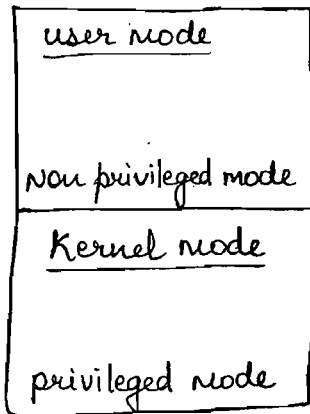 user mode
Non privileged mode
Kernel mode
privileged mode